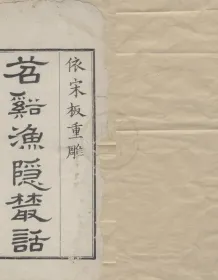 依宋板重雕
苕谿漁隱叢話